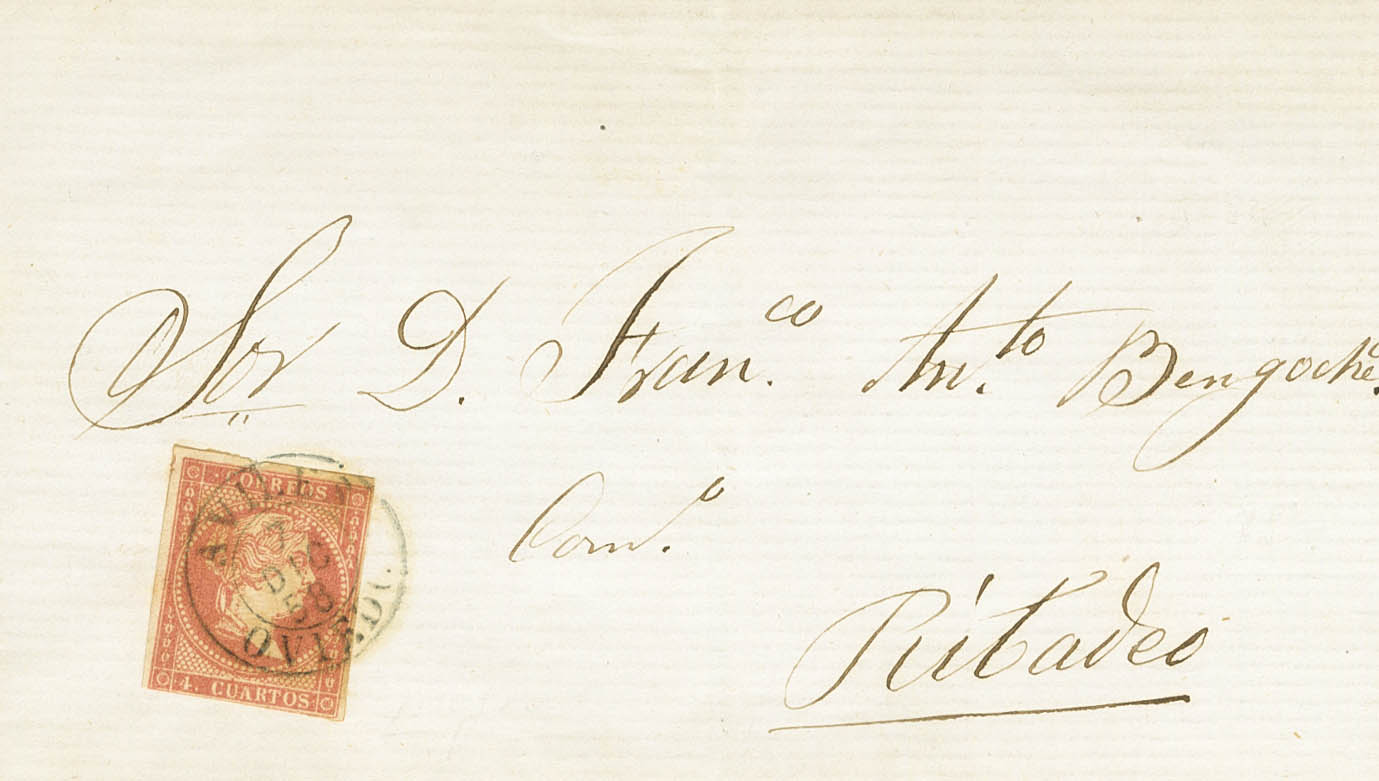 Sor D. Fran.co An.to Bengoche.
Com.o
Ribadeo
CORREOS
AVILES
DIC
58
OVIEDO.
4. CUARTOS